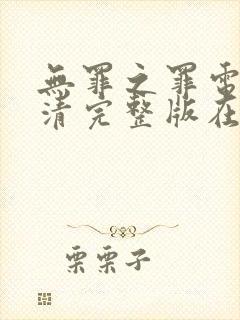 無罪之罪電
清完整版在
栗栗子